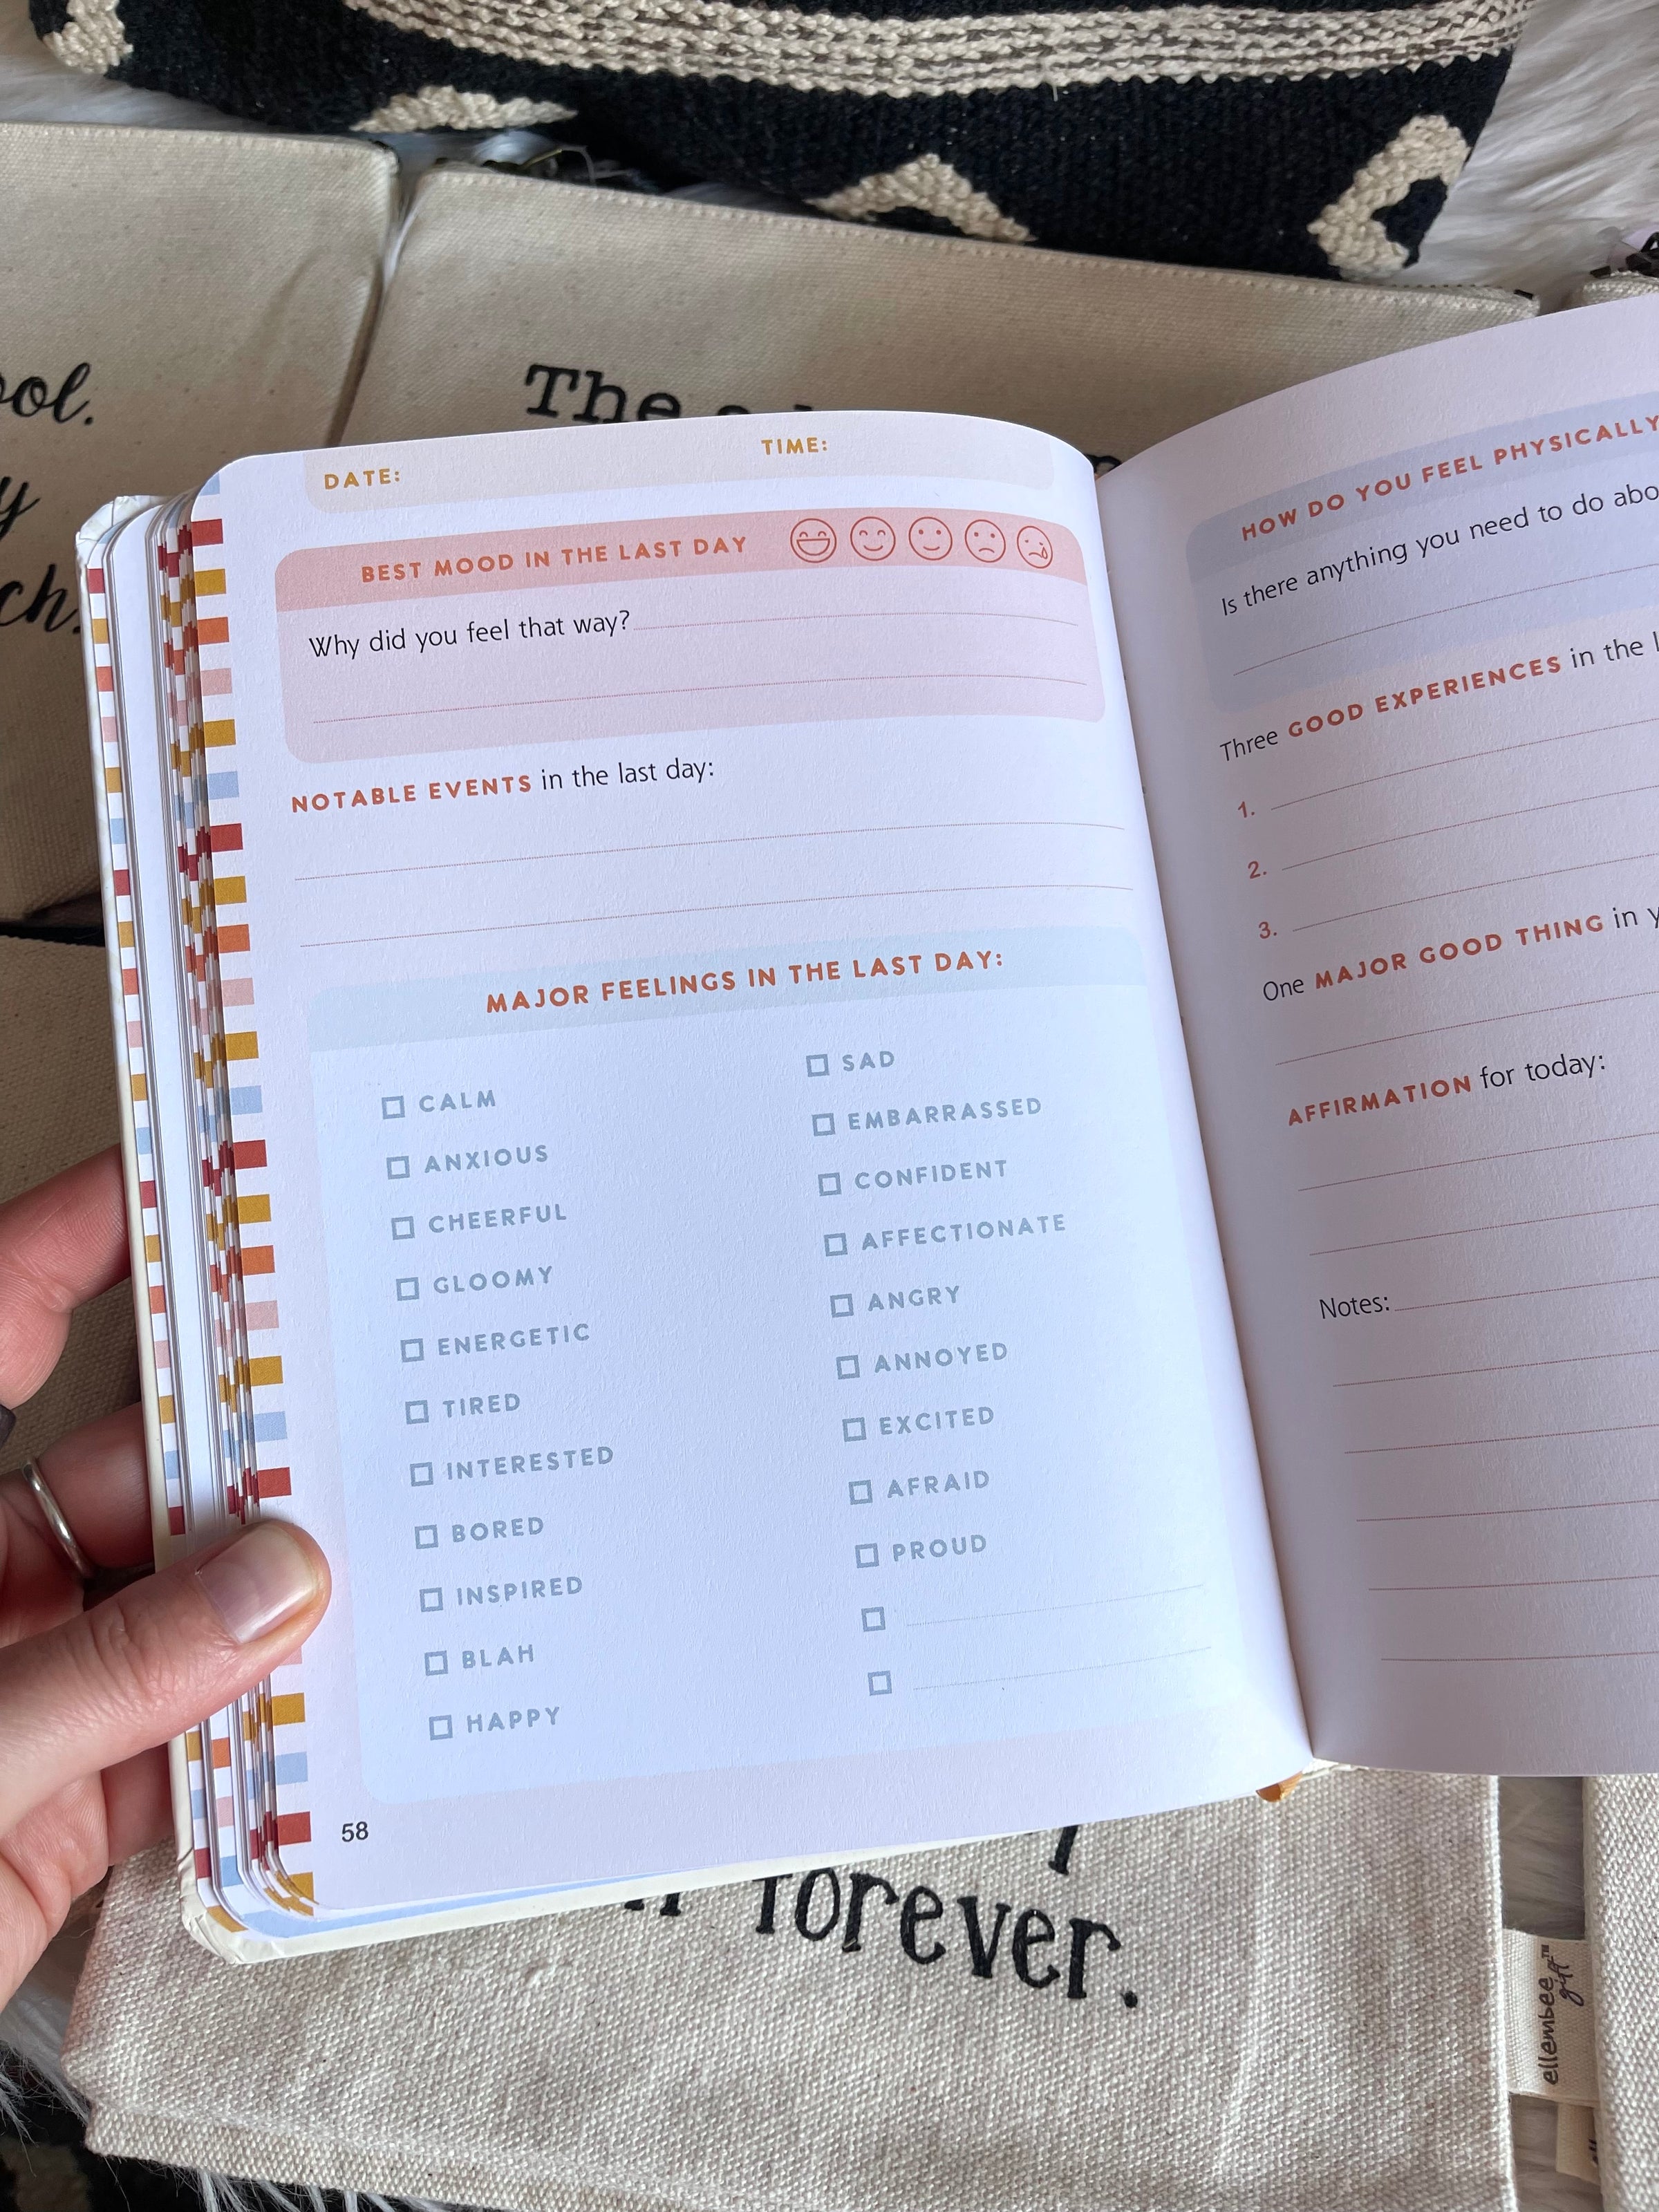 ool.
y
ch.
The
DATE:
TIME:
BEST MOOD IN THE LAST DAY
Why did you feel that way?
NOTABLE EVENTS in the last day:
MAJOR FEELINGS IN THE LAST DAY:
CALM
ANXIOUS
CHEERFUL
GLOOMY
ENERGETIC
TIRED
INTERESTED
BORED
INSPIRED
BLAH
HAPPY
SAD
EMBARRASSED
CONFIDENT
AFFECTIONATE
ANGRY
ANNOYED
EXCITED
AFRAID
PROUD
58
HOW DO YOU FEEL PHYSICALLY
Is there anything you need to do abo
Three GOOD EXPERIENCES in the l
1.
2.
3.
One MAJOR GOOD THING in y
AFFIRMATION for today:
Notes:
forever.
ellembee™
gift